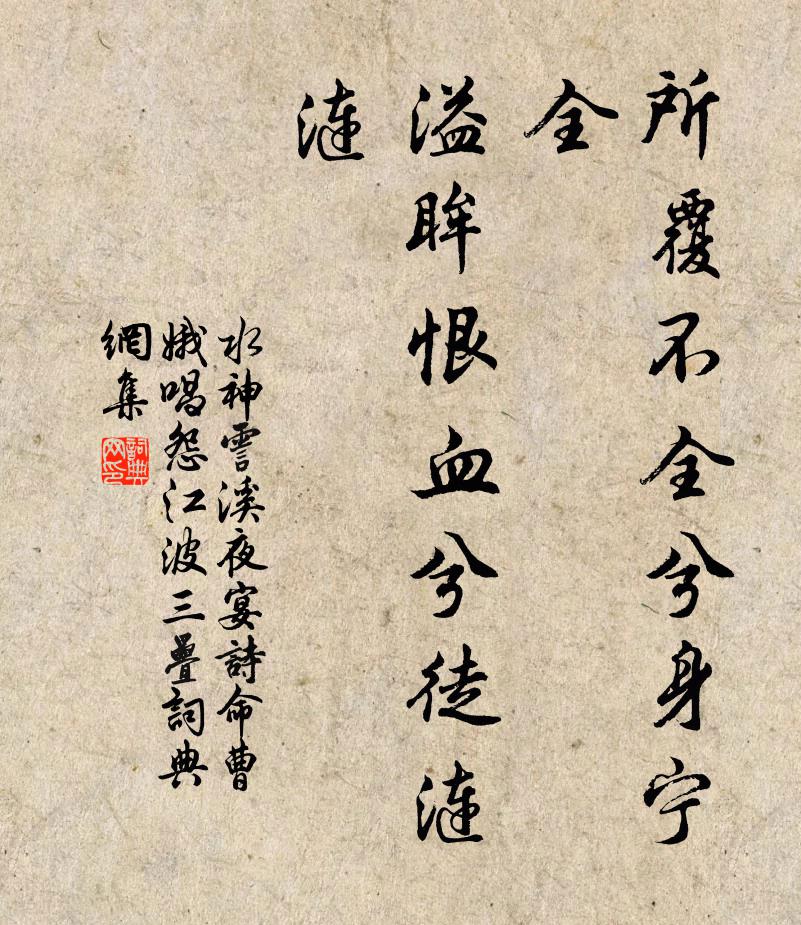 所覆不全兮身宁
全
溢眸恨血兮徒漣
漣
水神雪溪夜宴詩命曹
娥唱怨江波三疊詞典
網集
詞典
网印